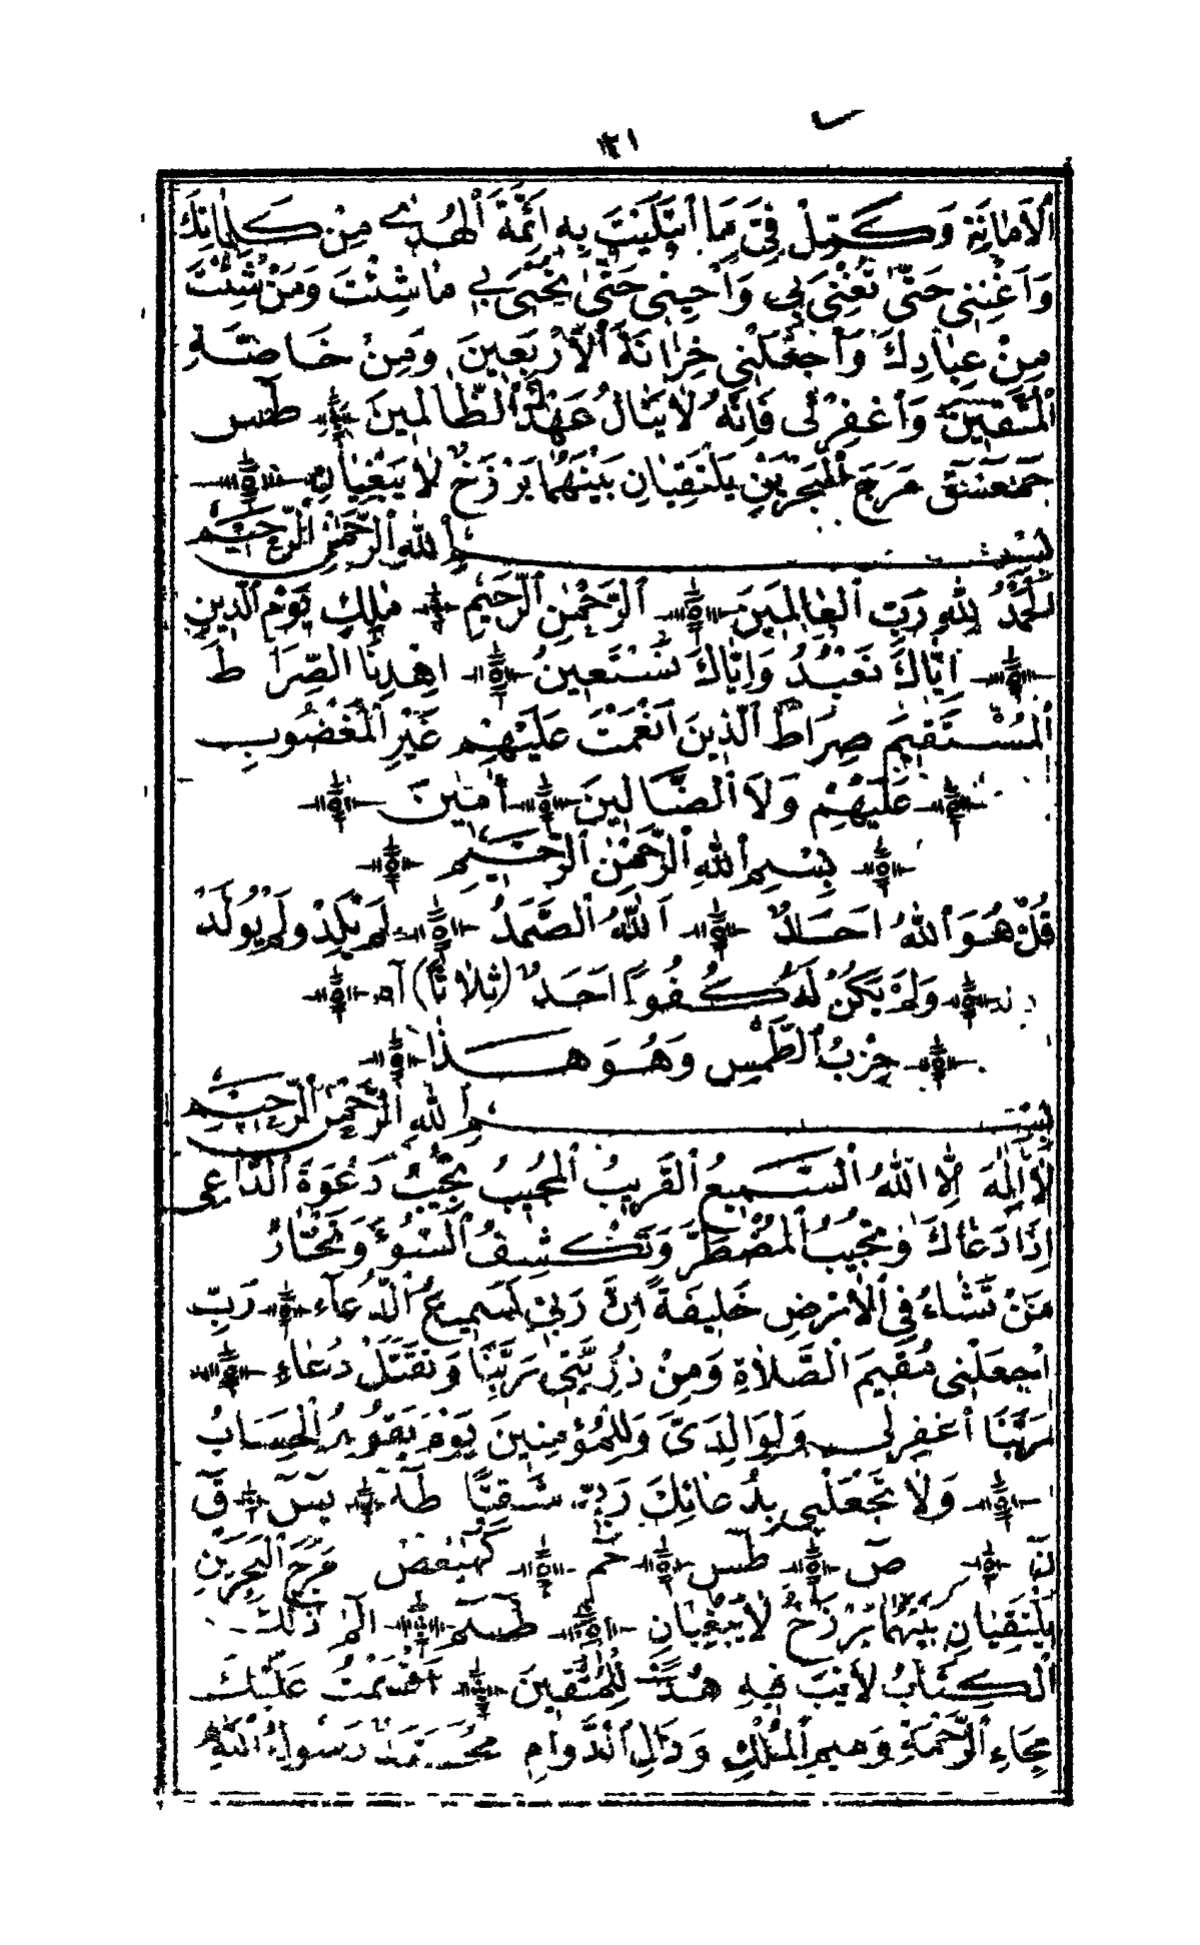 ١٢١
ٱلْأَمَانَةِ وَكَمِّلْ فِيَّ مَا ٱبْتَلَيْتَ بِهِ أَئِمَّةَ ٱلْهُدٰى مِنْ كَلِمَاتِكَ
وَٱغْنِنِي حَتَّى تُغْنِيَ بِي وَٱحْيِنِي حَتَّى تُحْيِيَ بِي مَا شِئْتَ وَمَنْ شِئْتَ
مِنْ عِبَادِكَ وَٱجْعَلْنِي خِزَانَةَ ٱلْأَرْبَعِينَ وَمِنْ خَاصَّةِ
ٱلْمُتَّقِينَ وَٱغْفِرْ لِي فَإِنَّهُ لَا يَنَالُ عَهْدُكَ ٱلظَّالِمِينَ طٓس
حٓمٓعٓسٓقٓ مَرَجَ ٱلْبَحْرَيْنِ يَلْتَقِيَانِ بَيْنَهُمَا بَرْزَخٌ لَا يَبْغِيَانِ
بِسْمِ ٱللهِ ٱلرَّحْمٰنِ ٱلرَّحِيمِ
ٱلْحَمْدُ لِلّٰهِ رَبِّ ٱلْعَالَمِينَ ٱلرَّحْمٰنِ ٱلرَّحِيمِ مٰلِكِ يَوْمِ ٱلدِّينِ
إِيَّاكَ نَعْبُدُ وَإِيَّاكَ نَسْتَعِينُ اِهْدِنَا الصِّرَاطَ
ٱلْمُسْتَقِيمَ صِرَاطَ ٱلَّذِينَ أَنْعَمْتَ عَلَيْهِمْ غَيْرِ ٱلْمَغْضُوبِ
عَلَيْهِمْ وَلَا ٱلضَّالِّينَ أٰمِينَ
بِسْمِ ٱللهِ ٱلرَّحْمٰنِ ٱلرَّحِيمِ
قُلْ هُوَ ٱللهُ أَحَدٌ ٱللّٰهُ ٱلصَّمَدُ لَمْ يَلِدْ وَلَمْ يُولَدْ
وَلَمْ يَكُنْ لَهُ كُفُوًا أَحَدٌ (ثَلَاثًا) آه
حِزْبُ ٱلطَّمْسِ وَهُوَ هَـذَا
بِسْمِ ٱللهِ ٱلرَّحْمٰنِ ٱلرَّحِيمِ
لَا إِلٰهَ إِلَّا ٱللهُ ٱلسَّمِيعُ ٱلْقَرِيبُ ٱلْمُجِيبُ تُجِيبُ دَعْوَةَ ٱلدَّاعِي
إِذَا دَعَاكَ وَمُجِيبُ ٱلْمُضْطَرِّ وَتَكْشِفُ ٱلسُّوءَ وَتَخْتَارُ
مَنْ تَشَاءُ فِي ٱلْأَرْضِ خَلِيفَةً إِنَّ رَبِّي لَسَمِيعُ ٱلدُّعَآءِ رَبِّ
ٱجْعَلْنِي مُقِيمَ ٱلصَّلَاةِ وَمِنْ ذُرِّيَّتِي رَبَّنَا وَتَقَبَّلْ دُعَاءِ
رَبَّنَا ٱغْفِرْ لِي وَلِوَالِدَيَّ وَلِلْمُؤْمِنِينَ يَوْمَ يَقُومُ ٱلْحِسَابُ
وَلَا تَجْعَلْنِي بِدُعَائِكَ رَبِّ شَقِيًّا طٰهٓ يٓسٓ قٓ
نٓ صٓ طٓسٓ حٓم كٓهٰيٰعٓصٓ مَرَجَ ٱلْبَحْرَيْنِ
يَلْتَقِيَانِ بَيْنَهُمَا بَرْزَخٌ لَا يَبْغِيَانِ طٓسٓمٓ الٓمٓ ذٰلِكَ
ٱلْكِتَابُ لَا رَيْبَ فِيهِ هُدًى لِلْمُتَّقِينَ أَقْسَمْتُ عَلَيْكَ
بِحَاءِ ٱلرَّحْمَةِ وَمِيمِ ٱلْمُلْكِ وَدَالِ ٱلدَّوَامِ مُحَمَّدٌ رَسُولُ ٱللهِ